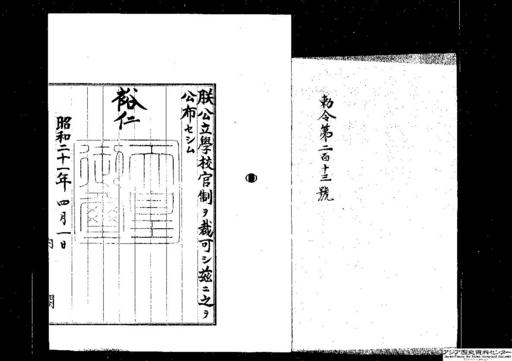 勅令第二百十三號
朕公立學校官制ヲ裁可シ茲ニ之ヲ
公布セシム
裕仁
天皇
御璽
昭和二十一年四月一日
アジア歴史資料センター